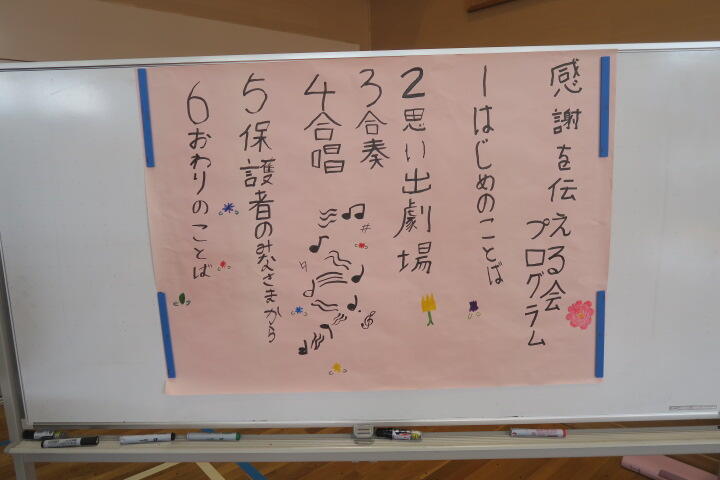 感謝を伝える会
プログラム
1はじめのことば
2思い出劇場
3合奏
4合唱
5保護者のみなさまから
6おわりのことば